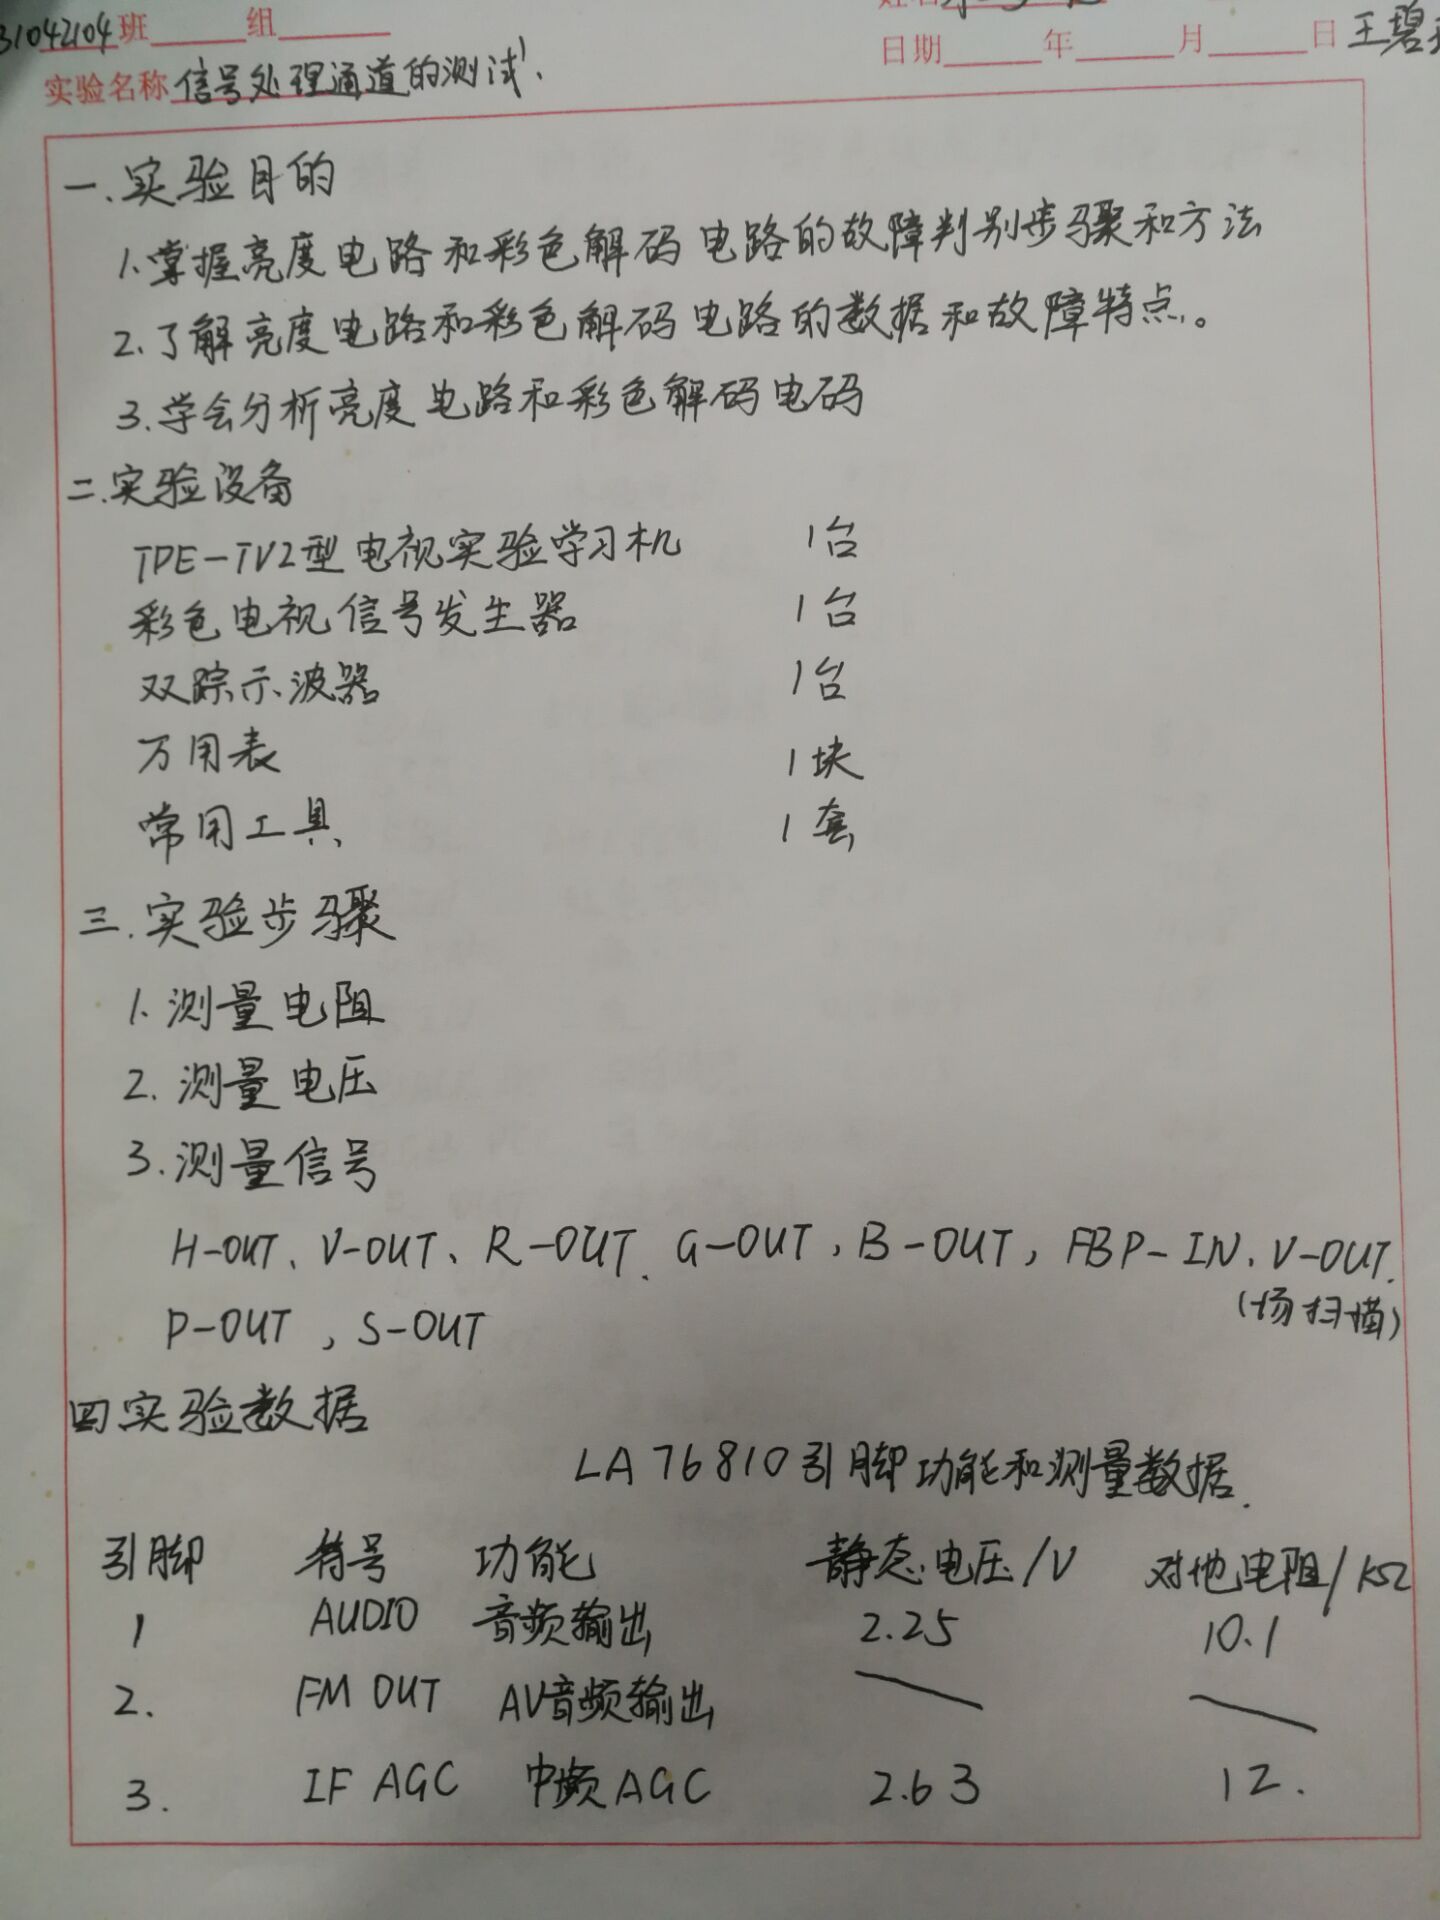 31042104班____组____
日期____年____月____日 王碧
实验名称 信号处理通道的测试.
一.实验目的
1.掌握亮度电路和彩色解码电路的故障判别步骤和方法
2.了解亮度电路和彩色解码电路的数据和故障特点。
3.学会分析亮度电路和彩色解码电码
二.实验设备
TPE-TV2型电视实验学习机 1台
彩色电视信号发生器 1台
双踪示波器 1台
万用表 1块
常用工具 1套
三.实验步骤
1.测量电阻
2.测量电压
3.测量信号
H-OUT、V-OUT、R-OUT、G-OUT,B-OUT,FBP-IN、V-OUT.
(场扫描)
P-OUT,S-OUT
四实验数据
LA76810引脚功能和测量数据.
引脚 符号 功能 静态电压/V 对地电阻/KΩ
1 AUDIO 音频输出 2.25 10.1
2. FM OUT AV音频输出 — —
3. IF AGC 中频AGC 2.63 12.